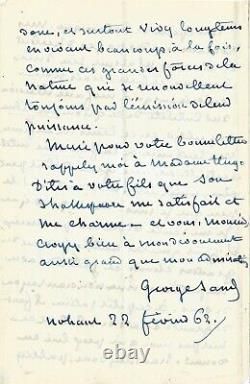 donc, et surtout vivez longtems
en vivant beaucoup à la fois,
comme ces grandes forces de la
nature qui se renouvellent
toujours par l'émission de leur
puissance.
Merci pour votre bonne lettre
rappelez moi à Madame Hugo
Dites à votre fils que son
Shakespeare me satisfait et
me charme – et vous, monsieur
croyez bien à mon dévouement
aussi grand que mon admiration
George Sand
Nohant 22 février 62.